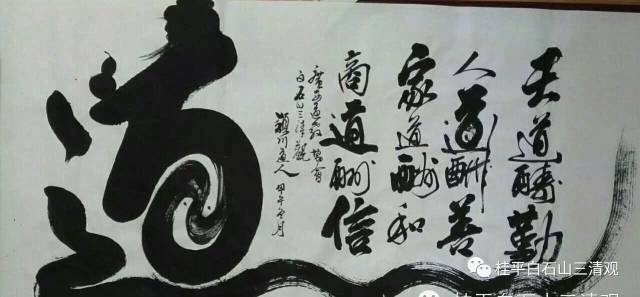 天道酬勤
人道酬善
家道酬和
商道酬信
广西道教协会
白石山三清观
颍川道人
甲午
月
道
桂平白石山三清观